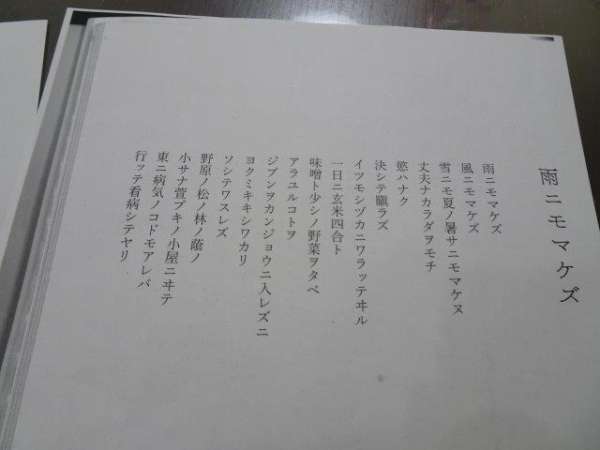 雨ニモマケズ
雨ニモマケズ
風ニモマケズ
雪ニモ夏ノ暑サニモマケヌ
丈夫ナカラダヲモチ
慾ハナク
決シテ瞋ラズ
イツモシヅカニワラッテヰル
一日ニ玄米四合ト
味噌ト少シノ野菜ヲタベ
アラユルコトヲ
ジブンヲカンジョウニ入レズニ
ヨクミキキシワカリ
ソシテワスレズ
野原ノ松ノ林ノ蔭ノ
小サナ萱ブキノ小屋ニヰテ
東ニ病気ノコドモアレバ
行ッテ看病シテヤリ